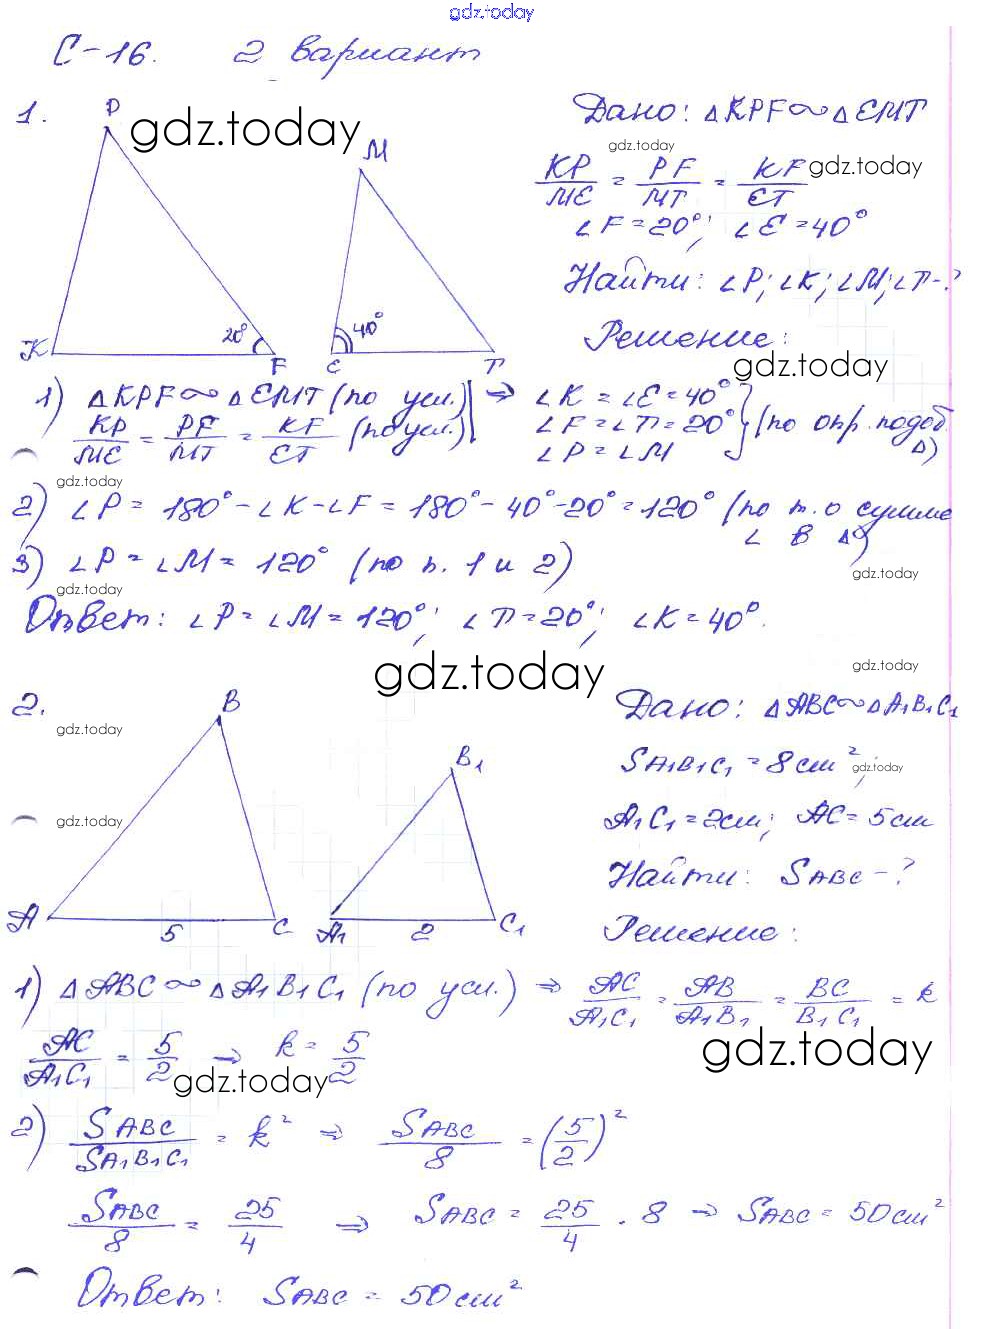 gdz.today
С-16. 2 вариант
1.
P
gdz.today
M
K
20°
F
40°
E
T
Дано: △KPF∾△EMT
gdz.today
KP/ME = PF/MT = KF/ET
gdz.today
∠F=20°; ∠E=40°
Найти: ∠P; ∠K; ∠M; ∠T-?
Решение:
gdz.today
1) △KPF∾△EMT (по усл.) ⇒ ∠K=∠E=40°
KP/ME = PF/MT = KF/ET (по усл.) ∠F=∠T=20° (по опр. подоб. △)
∠P=∠M
gdz.today
2) ∠P=180°-∠K-∠F=180°-40°-20°=120° (по т. о сумме ∠ в △)
3) ∠P=∠M=120° (по п. 1 и 2)
gdz.today
gdz.today
Ответ: ∠P=∠M=120°; ∠T=20°; ∠K=40°.
gdz.today
gdz.today
2.
B
gdz.today
B1
gdz.today
A
5
C
A1
2
C1
Дано: △ABC∾△A1B1C1
SA1B1C1=8см²;
gdz.today
A1C1=2см; AC=5см
Найти: SABC-?
Решение:
1) △ABC∾△A1B1C1 (по усл.) ⇒ AC/A1C1 = AB/A1B1 = BC/B1C1 = k
gdz.today
AC/A1C1 = 5/2 ⇒ k = 5/2
gdz.today
2) SABC/SA1B1C1 = k² ⇒ SABC/8 = (5/2)²
SABC/8 = 25/4 ⇒ SABC = 25/4 · 8 ⇒ SABC=50см²
Ответ: SABC = 50см²